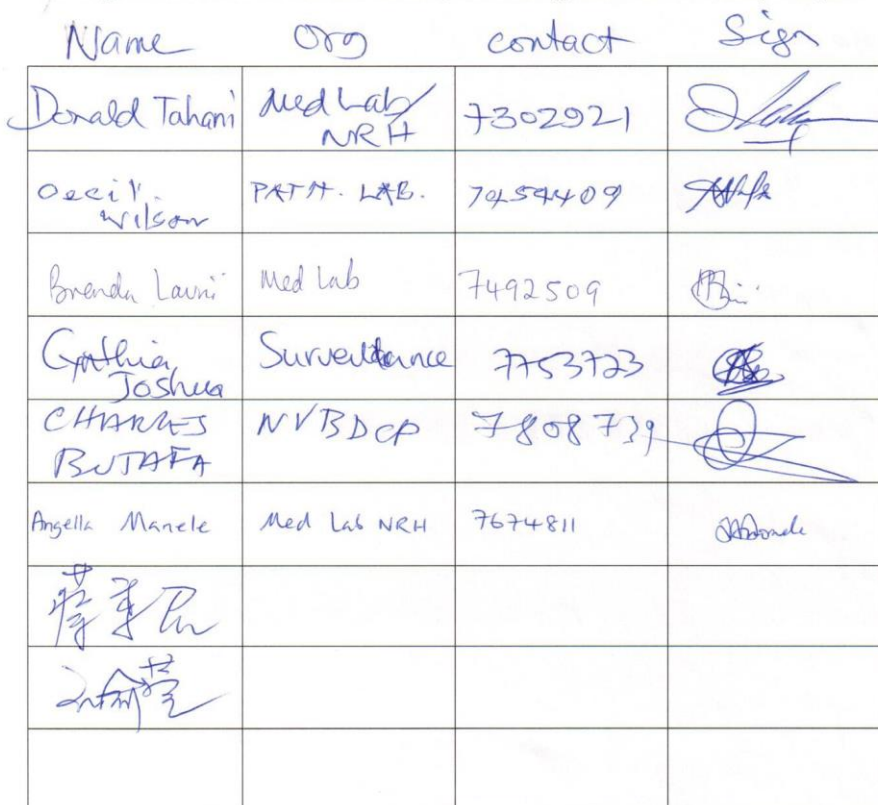 Name Org contact Sign
Donald Tahani Med Lab/
NRH 7302921
Cecil.
Wilson PATH. LAB. 7454409
Brenda Launi Med Lab 7492509
Cynthia
Joshua Surveillance 7753723
CHARLES
BUTAFA NVBDCP 7808739
Angella Manele Med Lab NRH 7674811